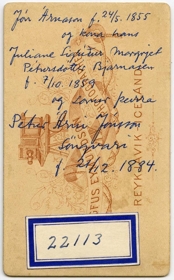 Jón Árnason f. 24/5. 1855
og kona hans
Juliane Sigríður Margrjet
Petursdóttir Bjarnasen
f. 7/10. 1859
og sonur þeirra
Petur Árni Jónsson
söngvari
f. 21/12. 1884.
REYKJAVIK
22113